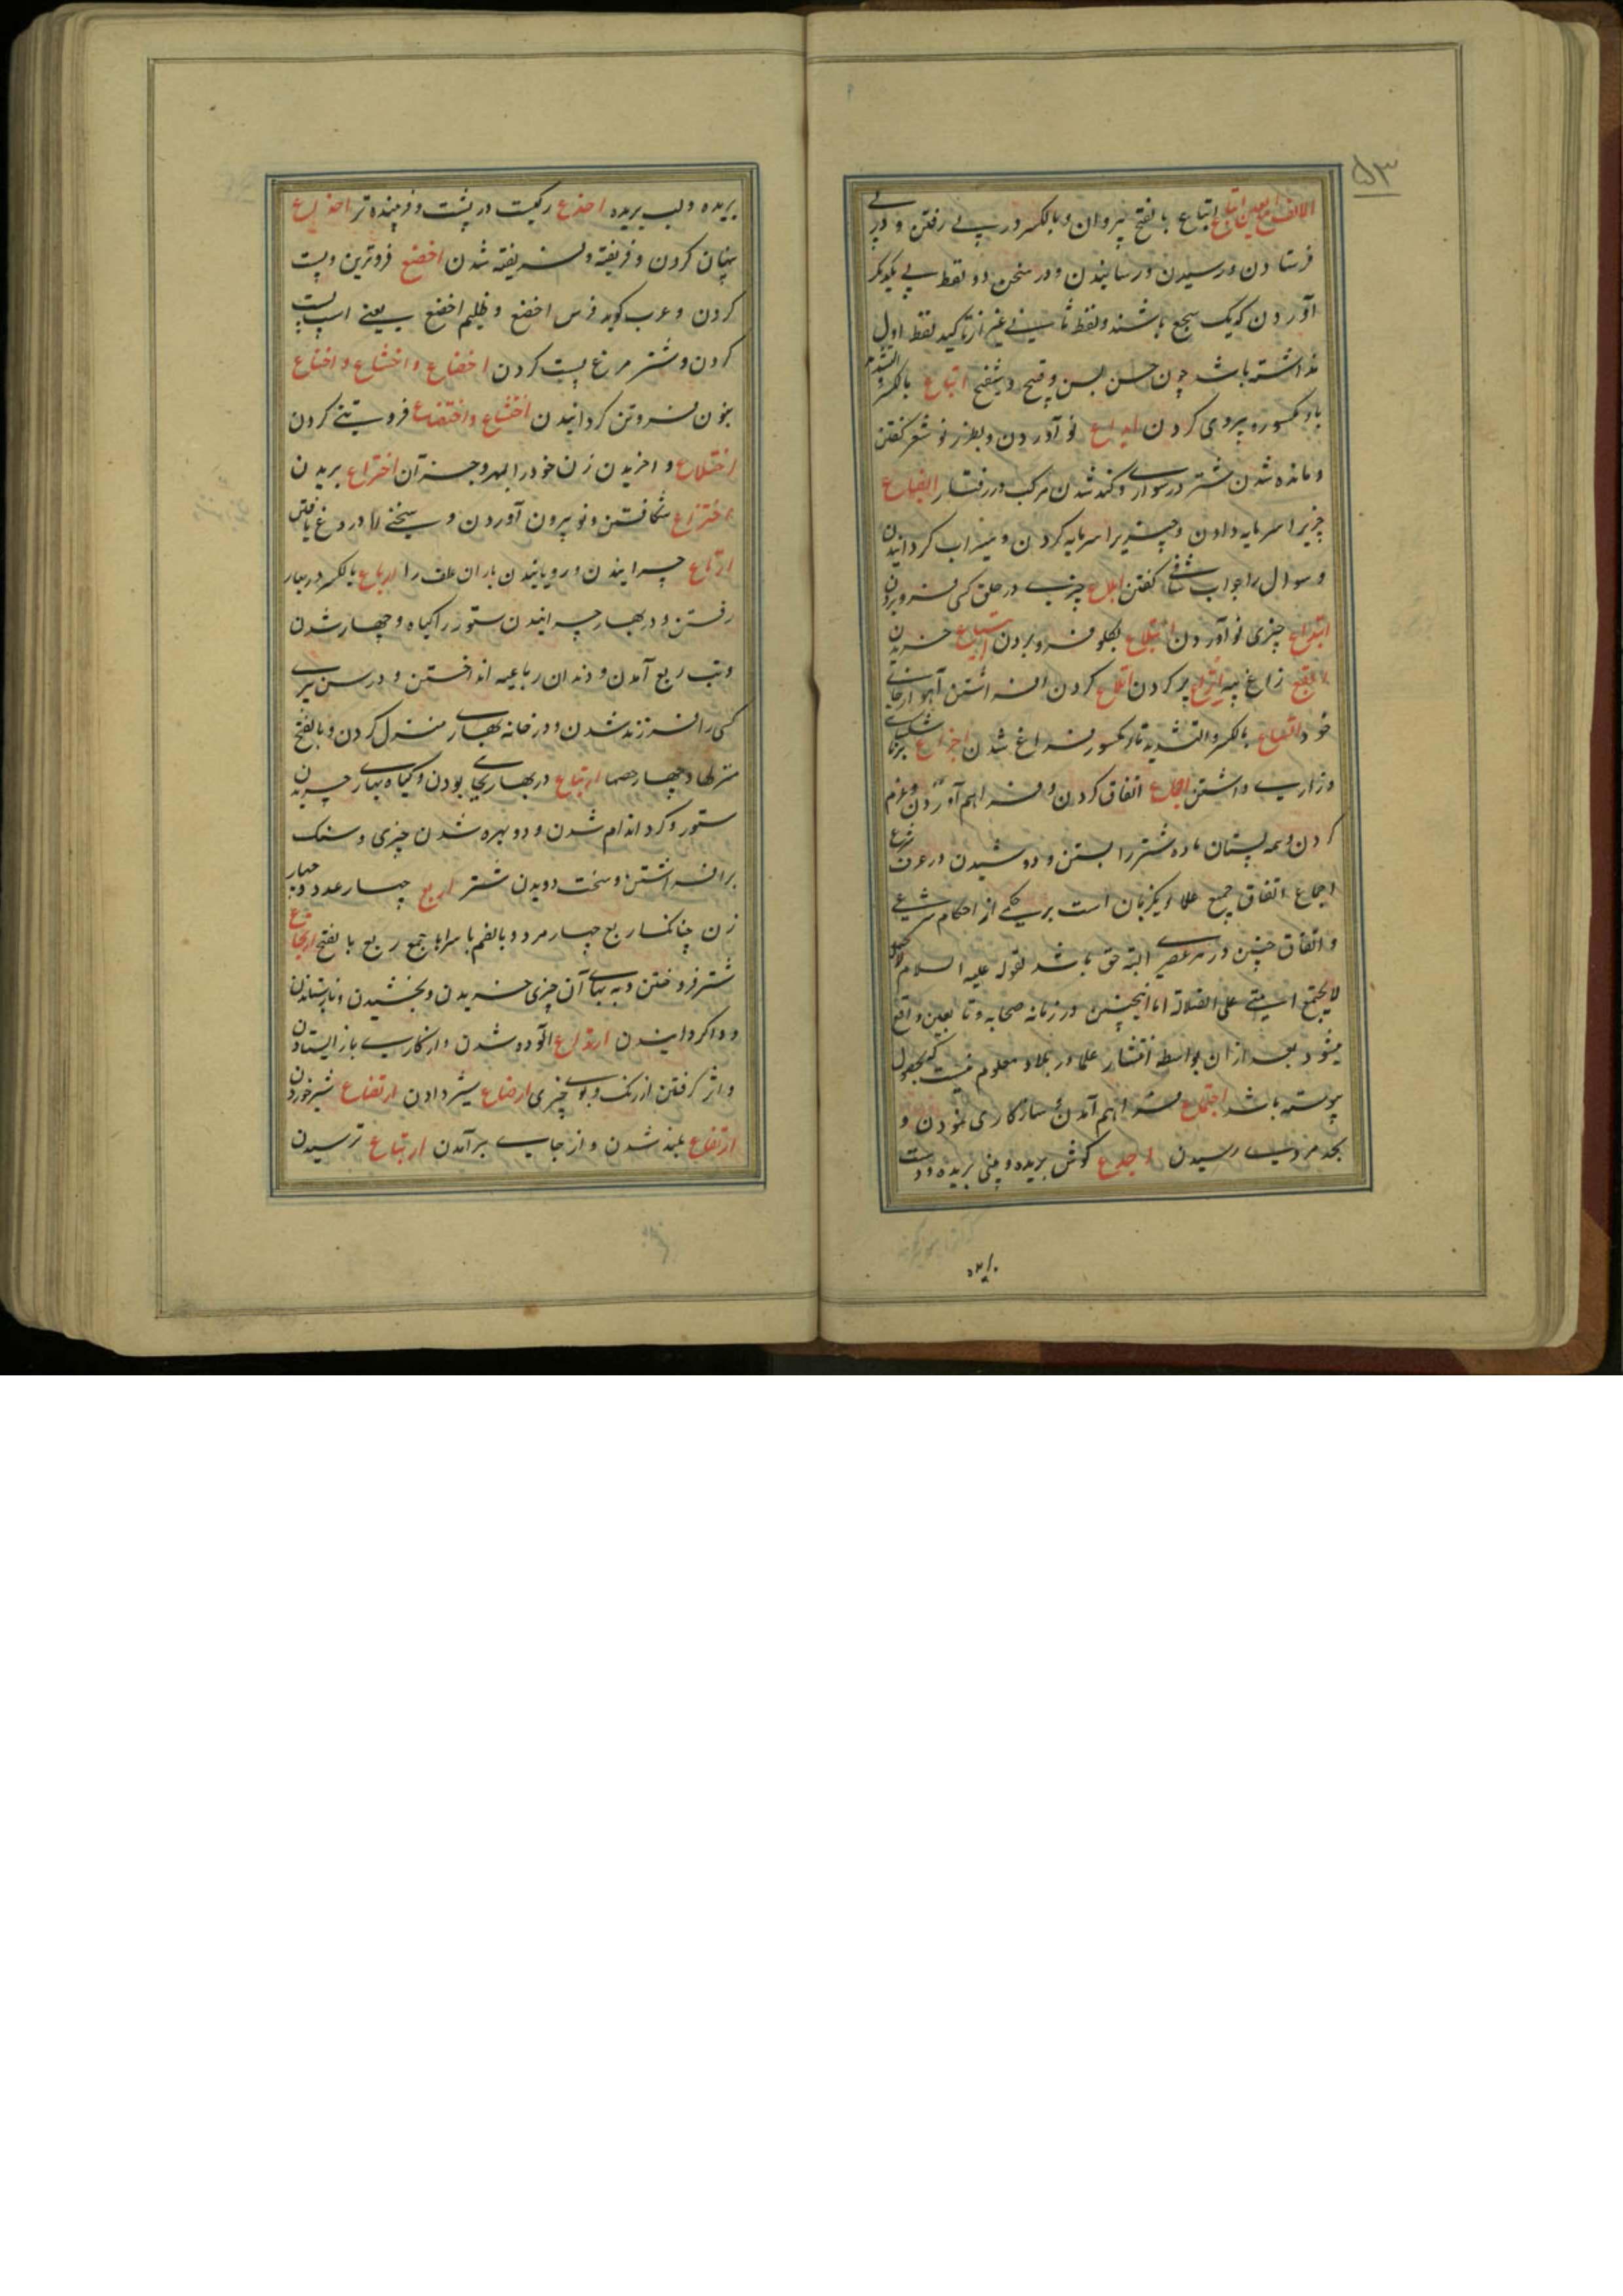 ۵۳
الالف مع العین اتباع اتباع بالفتح پیروان و بالکسر در پی رفتن و در پی
فرستادن و رسیدن و رسانیدن و در سخن دو لفظ پی یکدیگر
آوردن که یک سجع باشند و لفظ ثانی غیر از تاکید لفظ اول
نداشته باشد چون حسن بسن و قبیح و شقیح اتباع بالکسر و التشدید
باء مکسوره پیروی کردن ابداع نو آوردن و بطرز نو شعر کفتن
و مانده شدن شتر در سواری و کند شدن مرکب در رفتار ابضاع
چیزیرا سرمایه دادن و چیزیرا سرمایه کردن و سیراب کردانیدن
و سوال را جواب شافی کفتن ابلاع چیزی در حلق کسی فرو بردن
ابتداع چیزی نو آوردن ابتلاع بکلو فرو بردن ابتیاع خریدن
ابقع زاغ پیسه اتراع پر کردن اتلاع کردن افراشتن آهو از جای
خود اتساع بالکسر والتشدید تاء مکسور فراغ شدن اجزاع برنا شکیبای
و زاری داشتن اجماع اتفاق کردن و فراهم آوردن و عزم
کردن و همه پستان ماده شتر را بستن و دوشیدن و در عرف شرع
اجماع اتفاق جمیع علماء یکزمان است بر حکمی از احکام شرعی
و اتفاق چنین در هر عصری البته حق باشد لقوله علیه السلام
لا یجتمع امتی علی الضلالة اما اینچنین در زمانه صحابه و تابعین واقع
میشود بعد از ان بواسطه انتشار علما در بلاد معلوم نیست که بحصول
پیوسته باشد اجتماع فراهم آمدن و سازکاری نمودن و
بحد مردی رسیدن اجدع کوش بریده و بینی بریده و دست
بریده
بریده و لب بریده اخدع رکیست در پشت و فریبنده تر اخداع
پنهان کردن و فریفته و فریفته شدن اخضع فروترین و پست
کردن و عرب کوید فرس اخضع و ظلیم اخضع یعنی اسپ پست
کردن و شتر مرغ پست کردن اخضاع و اخشاع و اخناع
بنون فروتن کردانیدن اختشاع و اختضاع فروتنی کردن
اختلاع و اخریدن زن خود را بمهر و جز آن اختراع بریدن
اختزاع شکافتن و نو بیرون آوردن و سخنی را دروغ بافتن
ارتاع چرانیدن و رویانیدن باران علف را ارباع بالکسر در بهار
رفتن و در بهار چرانیدن ستور را کیاه و چهار شدن
و تب ربع آمدن و دندان رباعیه انداختن و در سن پیری
کسی را فرزند شدن و در خانه بهاری منزل کردن و بالفتح
منزلها و چهار حصها ارتباع در بهار بجای بودن و کیاه بهاری چریدن
ستور و کرد اندام شدن و دو بهره شدن چیزی و سنک
برافراشتن و سخت دویدن شتر اربع چهار عدد و چهار
زن چنانکه اربع چهار مرد و بالضم با سراها جمع ربع بالفتح ارجاع
شتر فروختن و به بهای آن چیزی خریدن و بخشیدن و باز ستاندن
و واکردانیدن ارتداع آلوده شدن و از کاری باز ایستادن
و اثر کرفتن از رنک و بوی چیزی ارضاع شیر دادن ارتضاع شیر خوردن
ارتفاع بلند شدن و از جای برآمدن ارتیاع ترسیدن